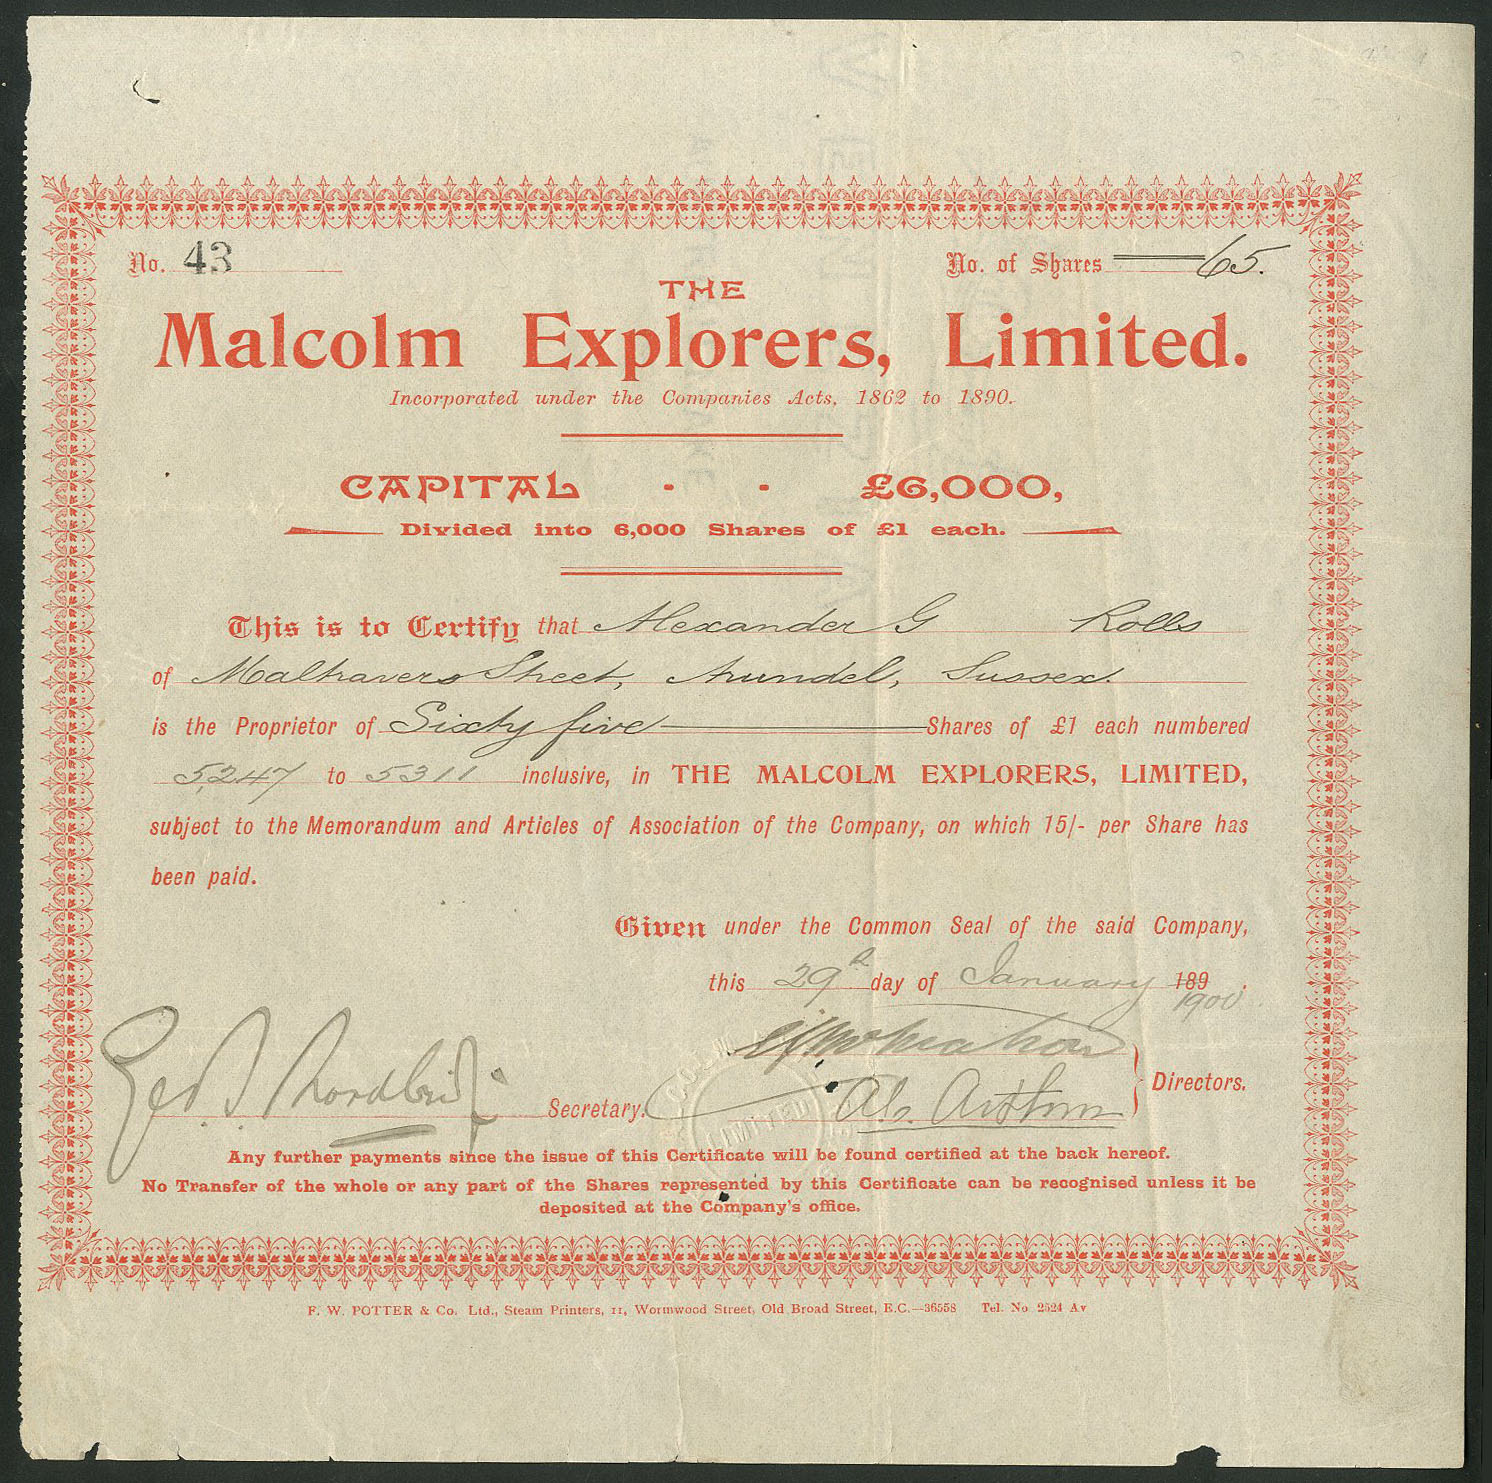 No. 43
No. of Shares 65.
THE
Malcolm Explorers, Limited.
Incorporated under the Companies Acts, 1862 to 1890.
CAPITAL - - £6,000,
Divided into 6,000 Shares of £1 each.
This is to Certify that Alexander G Rolls
of Maltravers Street, Arundel, Sussex.
is the Proprietor of Sixty five Shares of £1 each numbered
5,247 to 5311 inclusive, in THE MALCOLM EXPLORERS, LIMITED,
subject to the Memorandum and Articles of Association of the Company, on which 15/- per Share has
been paid.
Given under the Common Seal of the said Company,
this 29th day of January 189
1900
Directors.
Secretary.
LIMITED
Any further payments since the issue of this Certificate will be found certified at the back hereof.
No Transfer of the whole or any part of the Shares represented by this Certificate can be recognised unless it be
deposited at the Company's office.
F. W. POTTER & Co. Ltd., Steam Printers, 11, Wormwood Street, Old Broad Street, E.C.—36558 Tel. No 2524 Av